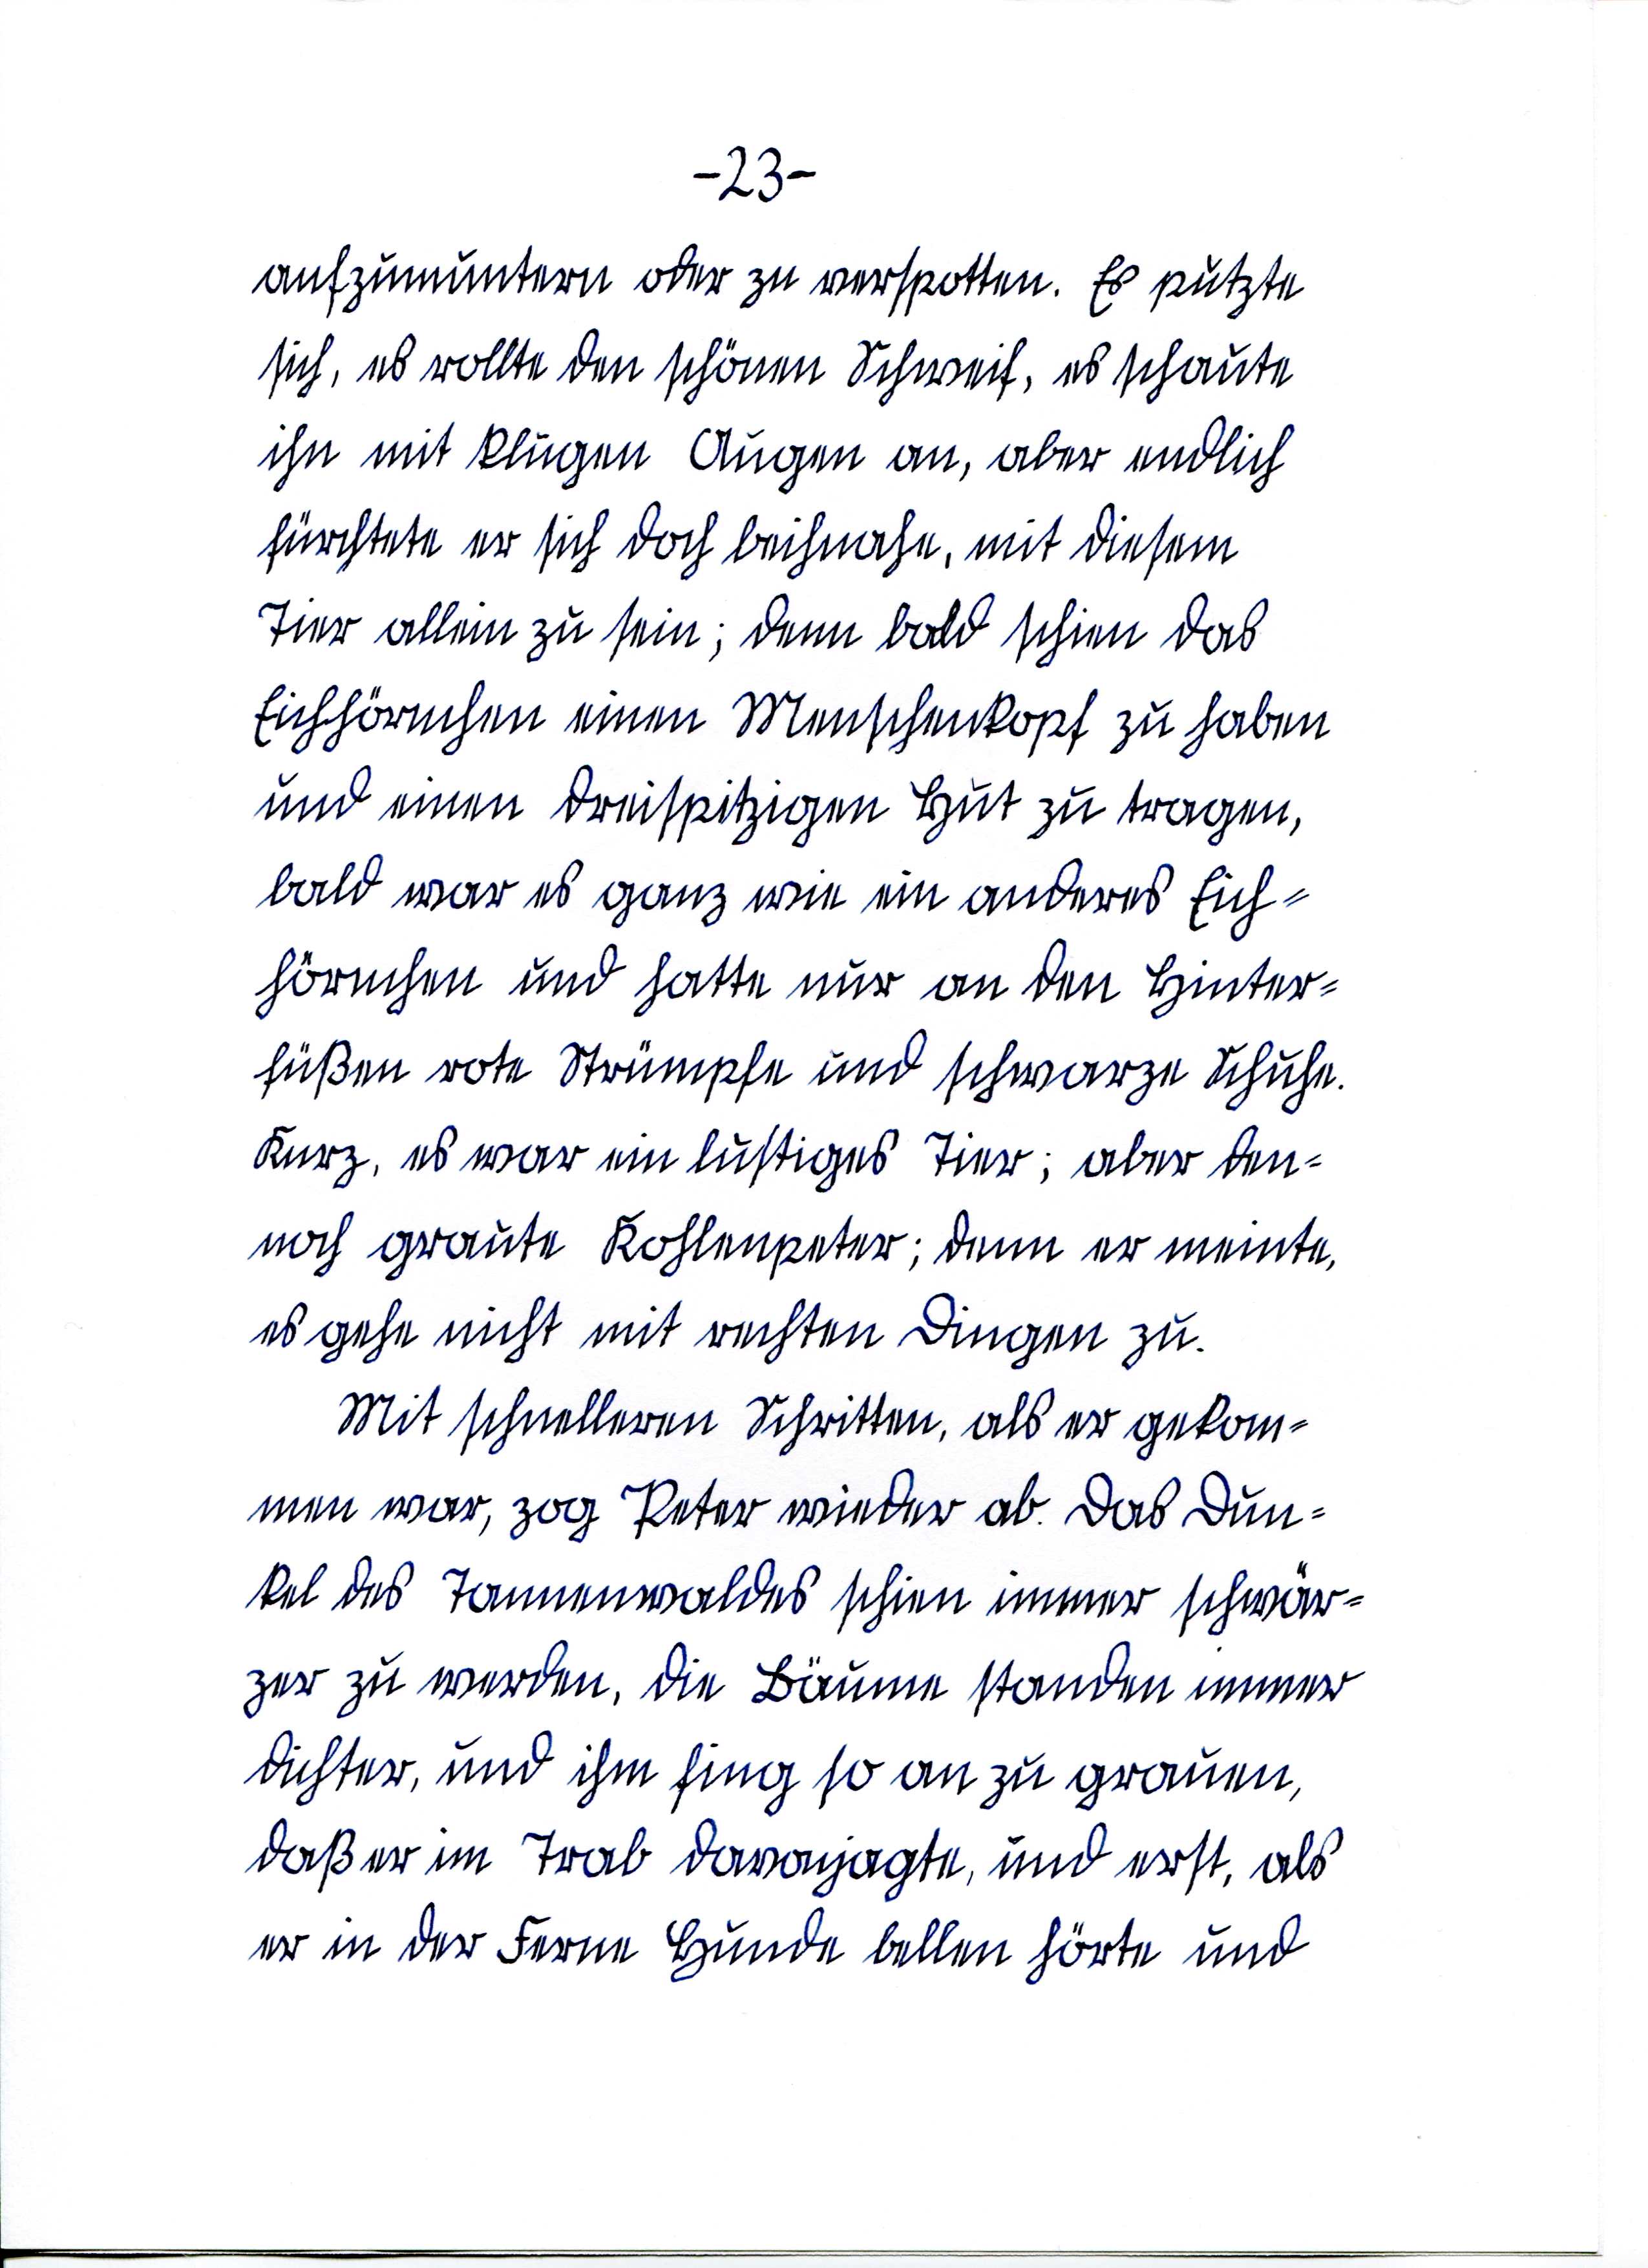 -23-
aufzumuntern oder zu verspotten. Es putzte
sich, es rollte den schönen Schweif, es schaute
ihn mit klugen Augen an, aber endlich
fürchtete er sich doch beihnahe, mit diesem
Tier allein zu sein; denn bald schien das
Eichhörnchen einen Menschenkopf zu haben
und einen dreispitzigen Hut zu tragen,
bald war es ganz wie ein anderes Eich=
hörnchen und hatte nur an den Hinter=
füßen rote Strümpfe und schwarze Schuhe.
Kurz, es war ein lustiges Tier; aber den=
noch graute Kohlenpeter; denn er meinte,
es gehe nicht mit rechten Dingen zu.
Mit schnelleren Schritten, als er gekom=
men war, zog Peter wieder ab. Das Dun=
kel des Tannenwaldes schien immer schwär=
zer zu werden, die Bäume standen immer
dichter, und ihm fing so an zu grauen,
daß er im Trab davonjagte, und erst, als
er in der Ferne Hunde bellen hörte und